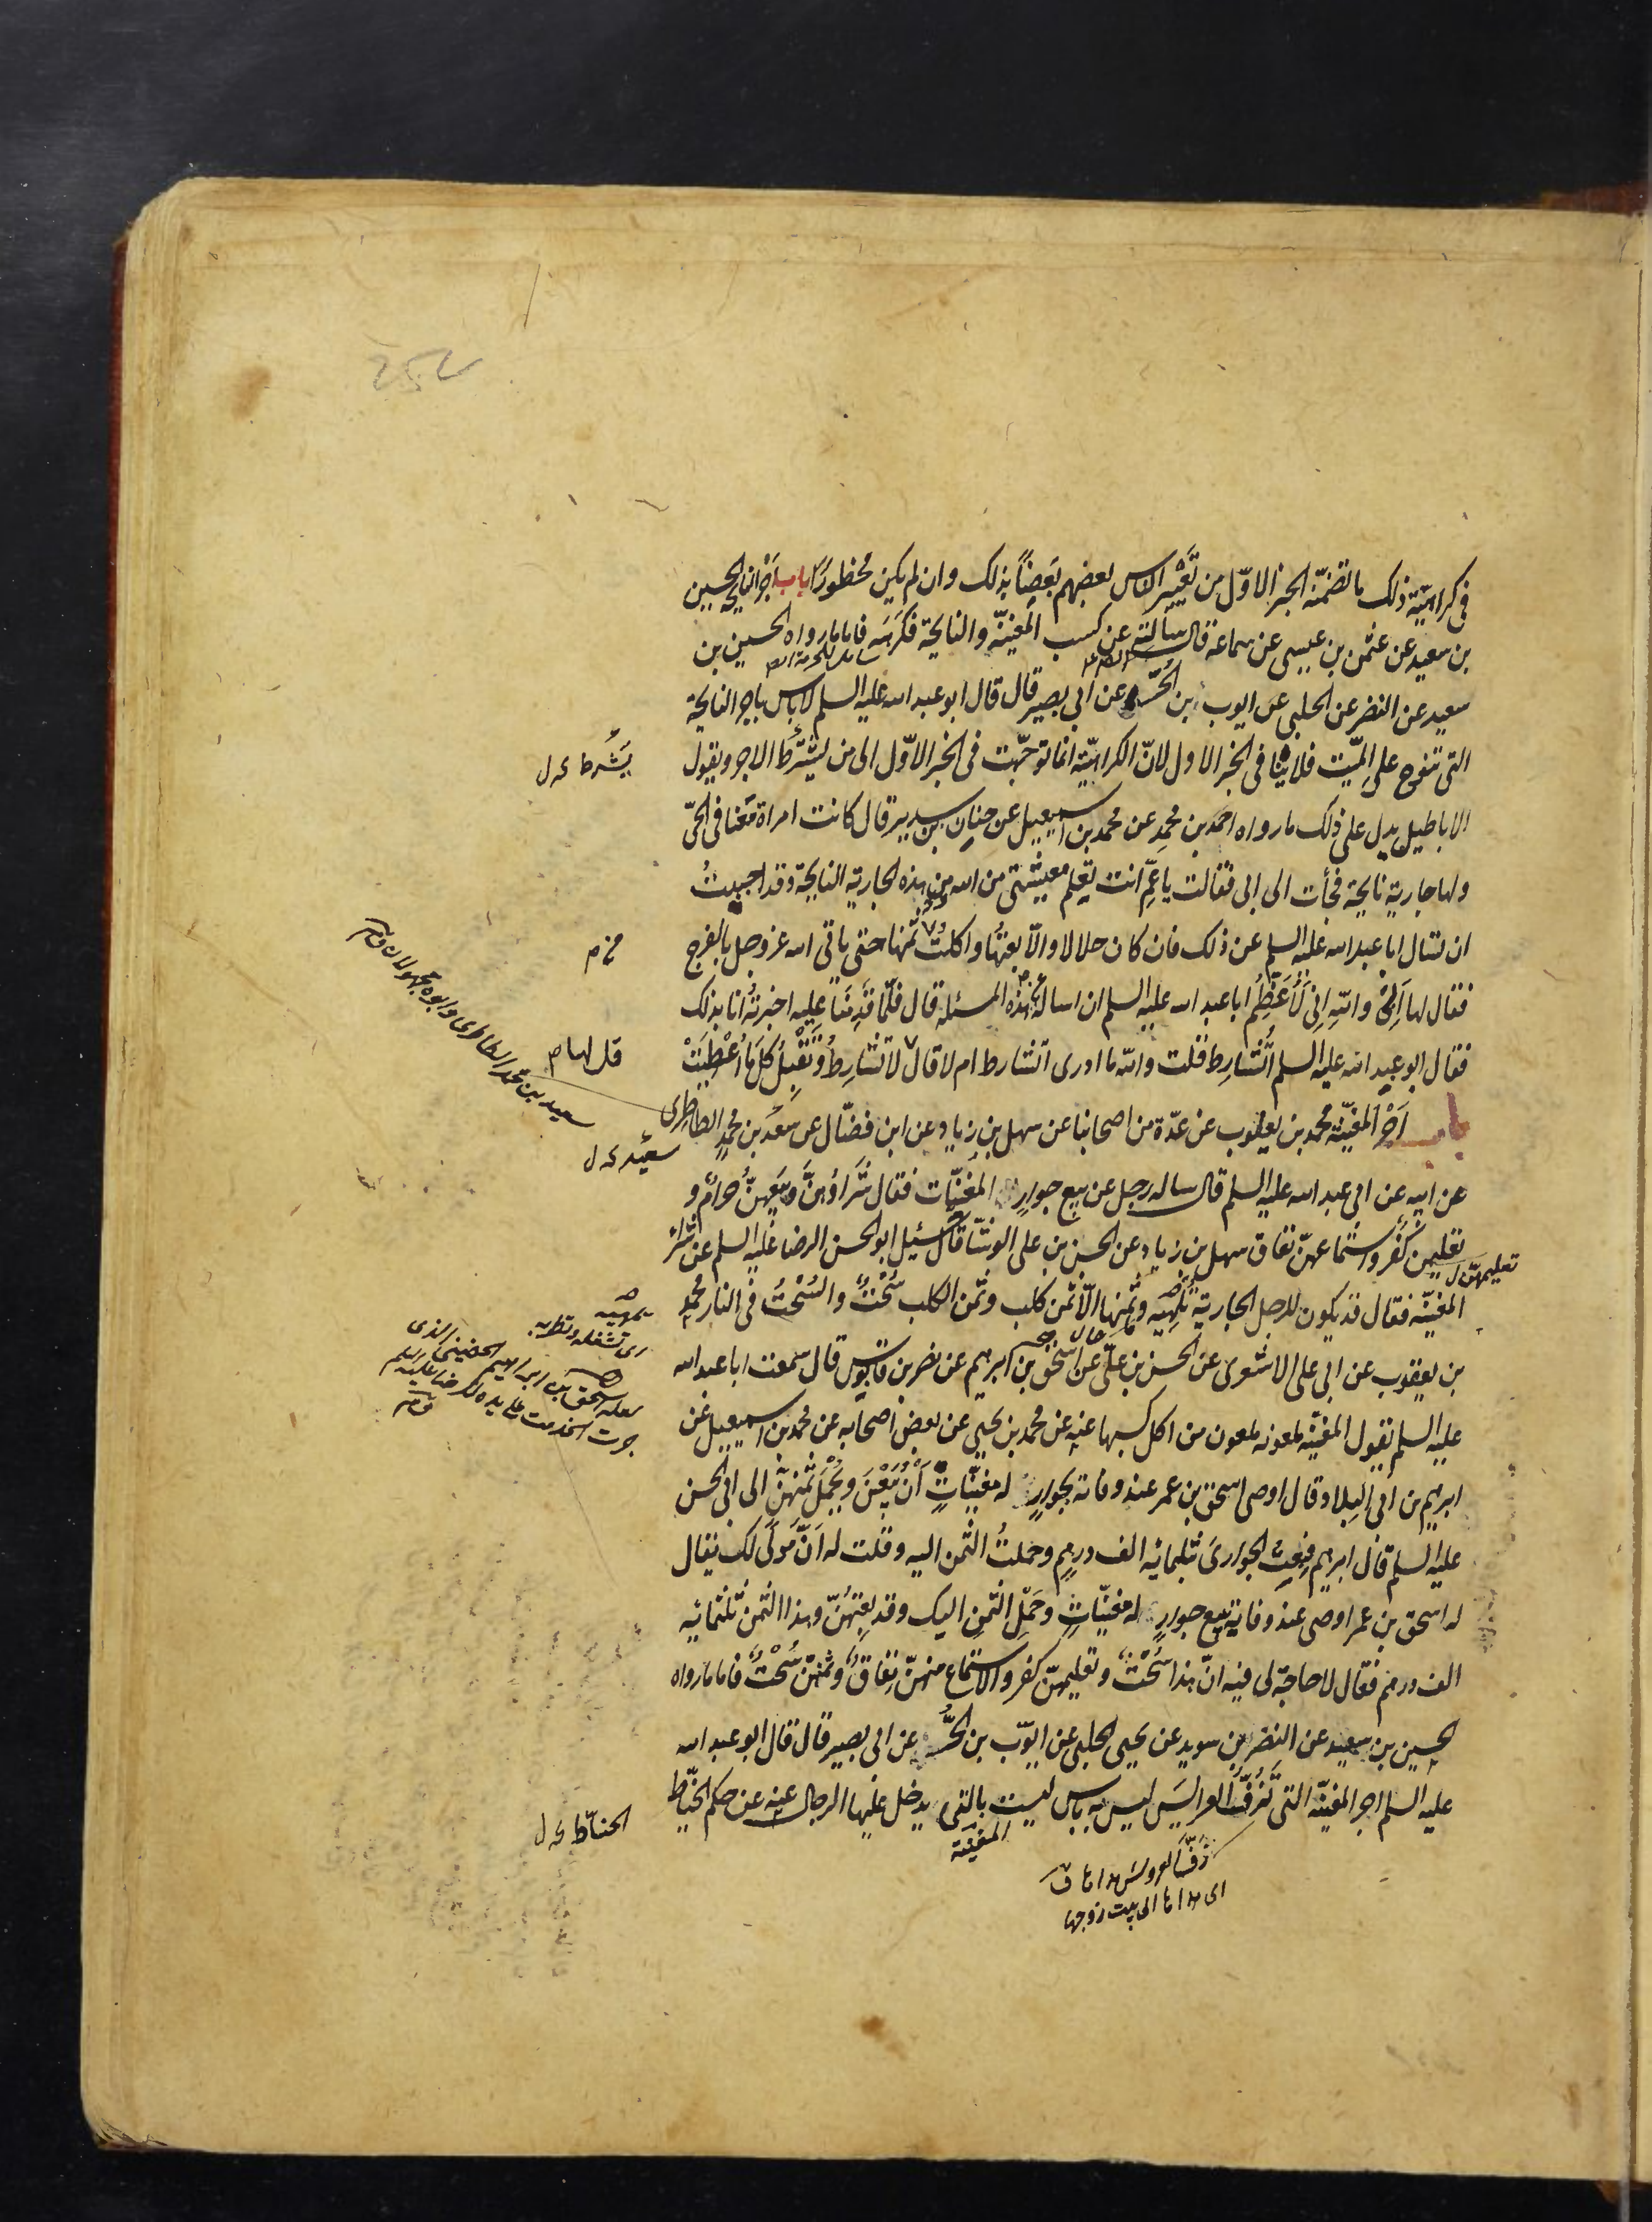 في كراهيّة ذلك ما تضمنّه الخبر الاوّل من تَعْيير الناس بعضهم بَعضاً بذلك وان لم يكن محظورًا باب اَجْر النايحة الحسين
بن سعيد عن عثمن بن عيسى عن سماعة قال سالته عن كسب المغنيّة والنايحة فكرَهَه فاما ما رواه الحسين بن
سعيد عن النضر عن الحلبى عن ايوب بن الحُرّ عن ابي بصير قال قال ابو عبد الله عليه السلم لا باس باجر النايحة
التي تنوح على الميّت فلا ينافى الخبر الاول لانّ الكراهيّة انما توجّهت فى الخبر الاوّل الى من يشترط الاجر ويقول
يَشْرط
الاباطيل يدل على ذلك ما رواه احمد بن محمد عن محمد بن اسمعيل عن حنان بن سدير قال كانت امراة مَعَنا فى الحىّ
ولها جارية نايحة فجأت الى ابى فقالت يا عمِّ انت تعلم معيشتى من الله ومن هذه الجارية النايحة وقد احببتُ
ان تسال ابا عبد الله عليه السلم عن ذلك فان كان حلالا والاّ بعتُها واكلتُ ثمنها حتى ياتى الله عز وجل بالفرج
فقال لها اَبِىْ واللهِ اِنّى لَاُعَظِّم ابا عبد الله عليه السلم ان اساله عن هذه المسئلة قال فلمّا قَدِمْنا عليه اخبرتُه انا بذلك
فقال ابو عبد الله عليه السلم اَتُشارِط فقلت والله ما ادرى اتشارط ام لا قال لا تُشارِط وتَقْبل كلّ ما اُعْطِيَتْ
قل لها
باب اَجْر المغنيّة محمد بن يعقوب عن عدّة من اصحابنا عن سهل بن زياد عن ابن فضّال عن سَعْد بن محمدٍ الطاطرى
سعيد
سعيد بن محمد الطاطرى وابوه مجهولان
عن ابيه عن ابى عبد الله عليه السلم قال ساله رجل عن بيع جوارٍ المغنّيات فقال شَراؤهنَّ وبَيعهنّ حرامٌ و
تعليمهن كُفْر واستماعهنّ نفاق سهل بن زياد عن الحسن بن على الوشّا قال سُئِل ابو الحسن الرضا عليه السلم عن شراء
تعليمهنّ
المغنيّة فقال قد يكون للرجل الجارية تُلهيه وثمنها الاّ ثمن كلب وثمن الكلب سُحْتٌ والسُحْتُ فى النار محمد
اى تشغله وتطربه
بن يعقوب عن ابى على الاشعرى عن الحسن بن علىّ عن اسحق بن ابرهيم عن نضر بن قابوس قال سمعت ابا عبد الله
لعله اسحق بن ابراهيم الحضينى الذى
جرت الخدمت على يده للرضا عليه السلم
عليه السلم يقول المغنيّة ملعونه ملعون من اكل كسبها عنه عن محمد بن يحيى عن بعض اصحابه عن محمد بن اسمعيل عن
ابرهيم بن ابى البِلاد قال اوصى اسحق بن عمر عند وفاته بجوارٍ له مغنيّاتٍ اَنْ يُبَعْنَ ويُحْمَل ثمنهنّ الى ابى الحسن
عليه السلم قال ابرهيم فبعت الجوارىَ بثلثمائه الف درهم وحملتُ الثمن اليه وقلت له اَنَّ مَولًى لك يقال
له اسحق بن عمر اوصى عند وفاته ببيع جوارٍ له مغنيّاتٍ وحَمْلِ الثمنِ اليك وقد بعتهُنّ وهذا الثمن ثلثمائه
الف درهم فقال لا حاجة لى فيه انّ هذا سُحْتٌ وتعليمهنّ كفر والاستماع منهنّ نِفاقٌ وثمنهنّ سُحْتٌ فاما ما رواه
الحسين بن سعيد عن النضر بن سويد عن يحيى الحلبى عن ايوّب بن الحُرّ عن ابى بصير قال قال ابو عبد الله
عليه السلم اجر المغنيّة التى تَزُفّ العرايسَ ليس به باس ليست بالتى يدخل عليها الرجال عنه عن حكم الخيّاط
الحنّاط
المغنية
زفّ العروس هداها
اى هداها الى بيت زوجها